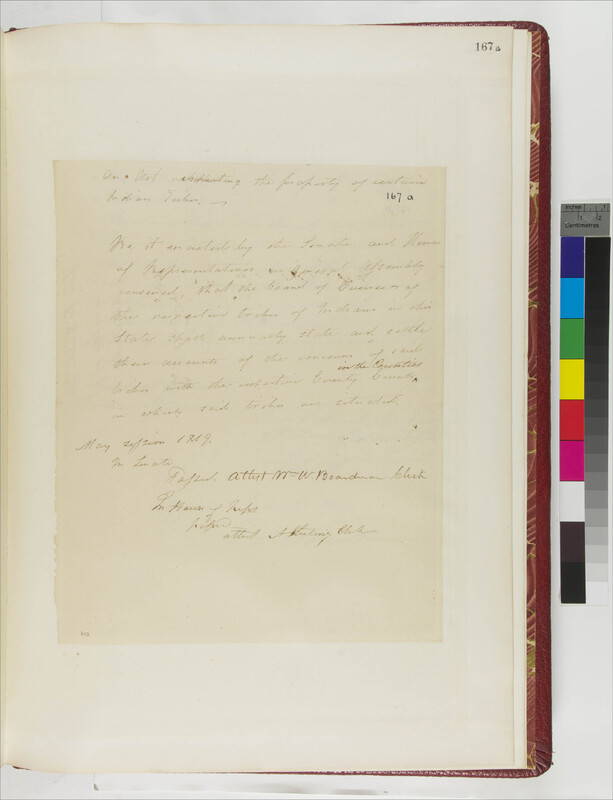 167a
An Act respecting the property of certain
Indian Tribes.
167 a
Be it enacted by the Senate and House
of Representatives in General Assembly
convened, that the board of Overseers of
the respective tribes of Indians in this
State shall annually state and settle
their accounts of the concerns of said
in the Counties
tribes with the respective County Courts
in which said tribes are situated.
May session 1819.
In Senate
Passed. Attest Wm W. Boardman Clerk
In House of Reps
attest A Sterling Clk
Inches
Centimetres